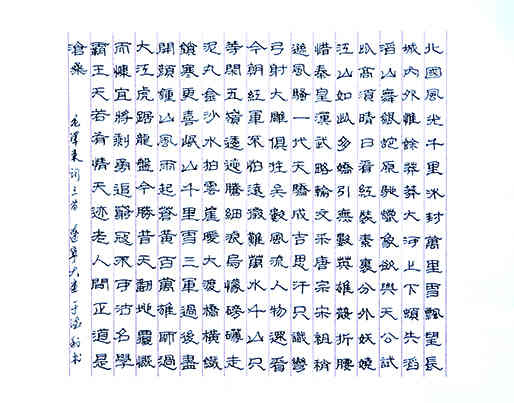 北國風光千里冰封萬里雪飄望長
城內外惟餘莽莽大河上下頓失滔
滔山舞銀蛇原馳蠟象欲與天公試
比高須晴日看紅裝素裹分外妖嬈
江山如此多嬌引無數英雄競折腰
惜秦皇漢武略輸文采唐宗宋祖稍
遜風騷一代天驕成吉思汗只識彎
弓射大雕俱往矣數風流人物還看
今朝紅軍不怕遠徵難萬水千山只
等閒五嶺逶迤騰細浪烏蒙磅礴走
泥丸金沙水拍雲崖暖大渡橋橫鐵
寒更喜岷山千里雪三軍過後盡
開顏鍾山風雨起蒼黃百萬雄師過
大江虎踞龍盤今勝昔天翻地覆慨
而慷宜將剩勇追窮寇不可沽名學
霸王天若有情天迹老人間正道是
滄桑 毛澤東詞三首 于 书